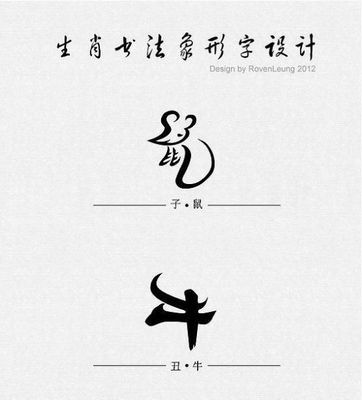 生肖书法象形字设计
Design by RovenLeung 2012
鼠
子·鼠
牛
丑·牛